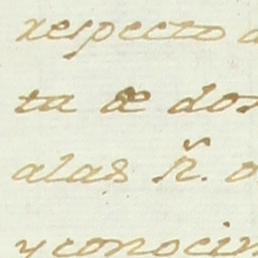 respecto
ta de dos
alas ñ.
y conocim